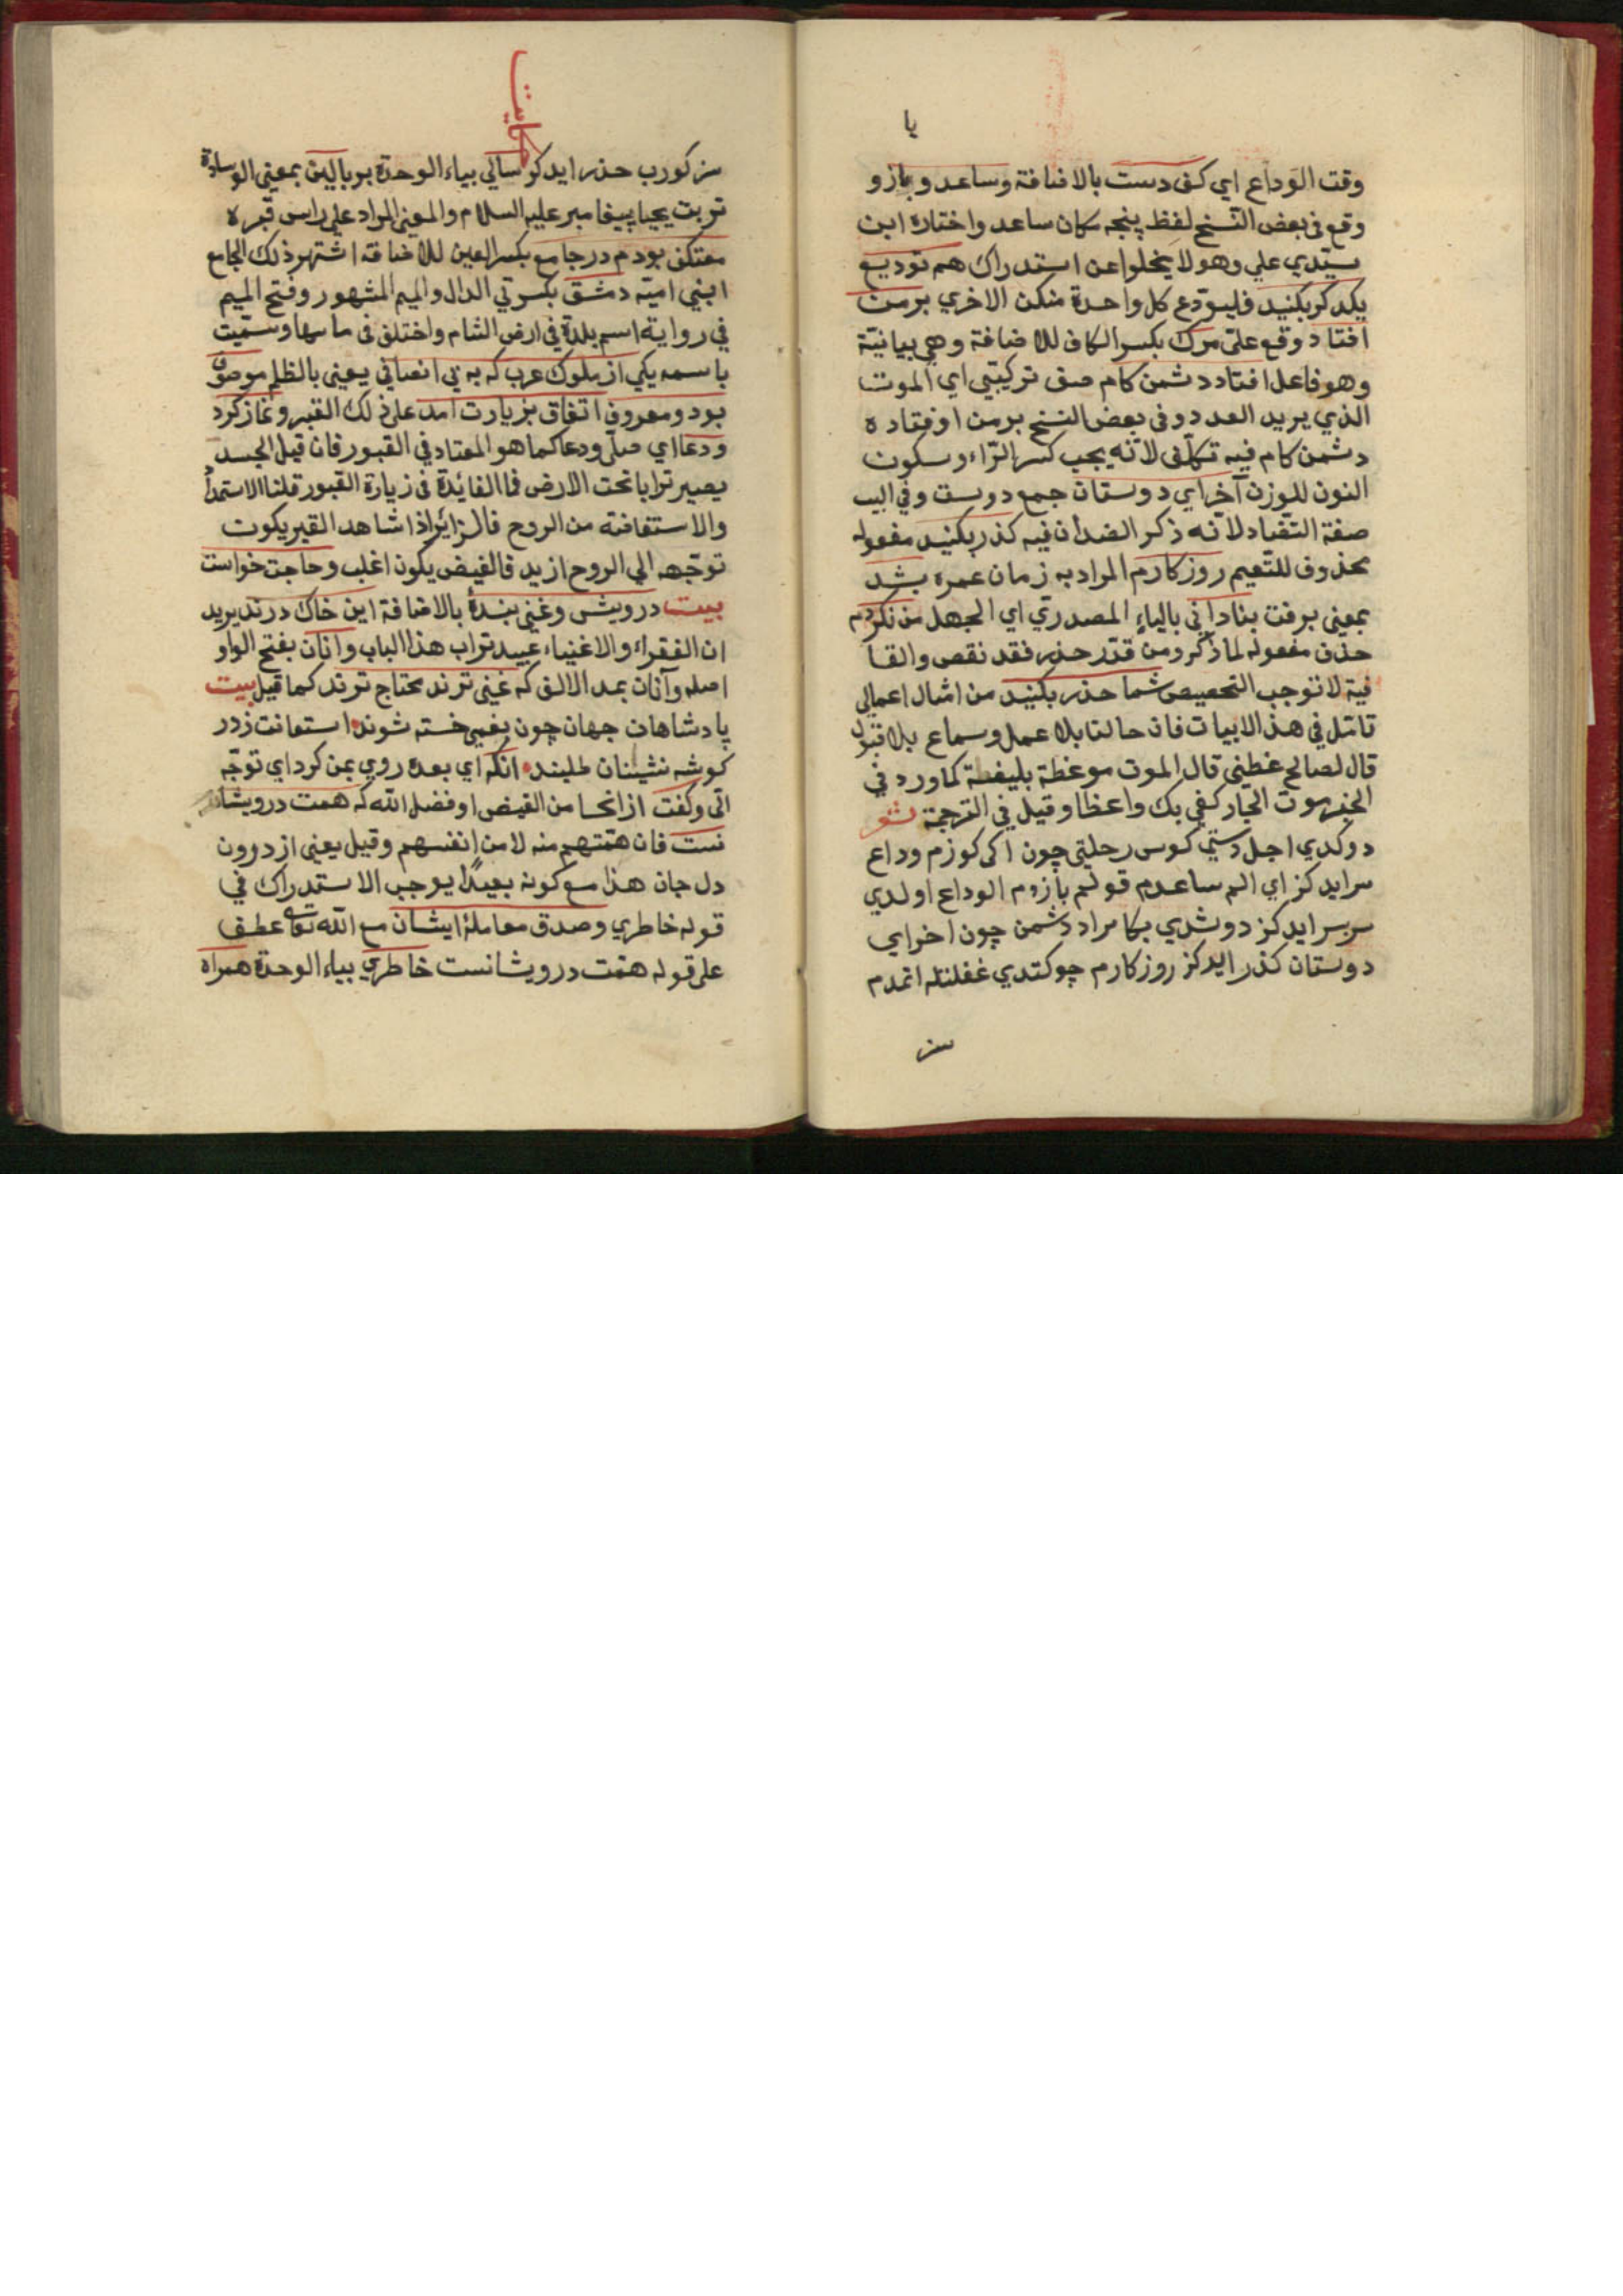 يا
وقت الوداع اي كف دست بالاضافة وساعد وبازو
وقع في بعض النسخ لفظ پنجه مكان ساعد واختاره ابن
سيّدي علي وهو لا يخلوا عن استدراك هم توديع
يكدكر بكنيد فليودّع كل واحدة منكن الاخري برمن
افتاد وقع عليّ مرك بكسر الكاف للاضافة وهي بيانيّة
وهو فاعل افتاد دشمن كام صف تركيبي اي الموت
الذي يريد العدد وفي بعض النسخ برمن اوفتاده
دشمن كام فيه تكلّف لانّه يجب كسر الرّاء وسكون
النون للوزن آخر اي دوستان جمع دوست وفي البيت
صفة التّضاد لانّه ذكر الضدان فيه كذر بكنيد مفعوله
محذوف للتّعيم روزكارم المراد به زمان عمره بشد
بمعني برفت بناداني بالياء المصدري اي الجهل من نكردم
حذف مفعوله لما ذكر ومن قدّر حذر فقد نقص والقا
فية لا توجب التحصيص شما حذر بكنيد من امثال اعمالي
تامّل في هذا الابيات فان حالنا بلا عمل وسماع بلا قبول
قال لصالح عظني قال الموت موعظة بليغة كما ورد في
الخبر موت الجار كفي بك واعظا وقيل في الترجمة شعر
دوكدي اجل دستي كوس رحلتي چون اكي كوزم وداع
سر ايدكز اي الم ساعدم قولم بازوم الوداع اولدي
سربسر ايدكز دوشدي بكا مراد دشمن چون اخر اي
دوستان كذر ايدكز روزكارم چو كتدي غفلتله اتمدم
سز
حكايت
سز كورب حذر ايدكز سالي بياء الوحدة بر بالين بمعني الوسادة
تربت يحيا پيغامبر عليه السلام والمعني المراد علي راس قبره
معتكف بودم در جامع بكسر العين للاضافة اشتهر ذلك الجامع
ابني اميّة دمشق بكسرتي الدال والميم المشهور وفتح الميم
في رواية اسم بلدة في ارض الشام واختلف في ما سها وسمّيت
باسمه يكي از ملوك عرب كه به بي انصافي يعني بالظلم موصوف
بود ومعروف اتفاق بزيارت امد علي ذلك القبر ونماز كرد
ودعا اي صلّي ودعا كما هو المعتاد في القبور فان قيل الجسد
يصير ترابا تحت الارض فما الفائدة في زيارة القبور قلنا الاستمداد
والاستفاضة من الروح فالزائر اذا شاهد القبر يكون
توجّهه الي الروح ازيد فالفيض يكون اغلب وحاجت خواست
بيت درويش وغني بندهٔ بالاضافة اين خاك درند يريد
ان الفقراء والاغنياء عبيد تراب هذا الباب وانان بفتح الواو
اصله وآنان بمد الالف كه غني ترند محتاج ترند كما قيل بيت
پادشاهان جهان چون بغمي خسته شوند استعانت زدر
كوشه نشينان طلبند انكه اي بعده روي بمن كرد اي توجّه
الّي وكفت از انجا من الفيض او فضل الله كه همت درويشا
نست فان همّتهم منه لا من انفسهم وقيل يعني از درون
دل جان هذا مع كونه بعيدا يوجب الاستدراك في
قوله خاطري وصدق معاملهٔ ايشان مع الله تعالى عطف
علي قوله همت درويشانست خاطري بياء الوحدة همراه